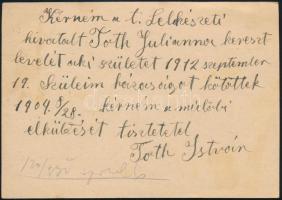 Kérném a t. Lelkészeti
hivatalt Toth Julianna kereszt
levelét aki született 1912 szeptember
19. Szüleim házasságot kötöttek
1909. 3/28. kérném a mielőbbi
elküldését tisztelettel
Toth István